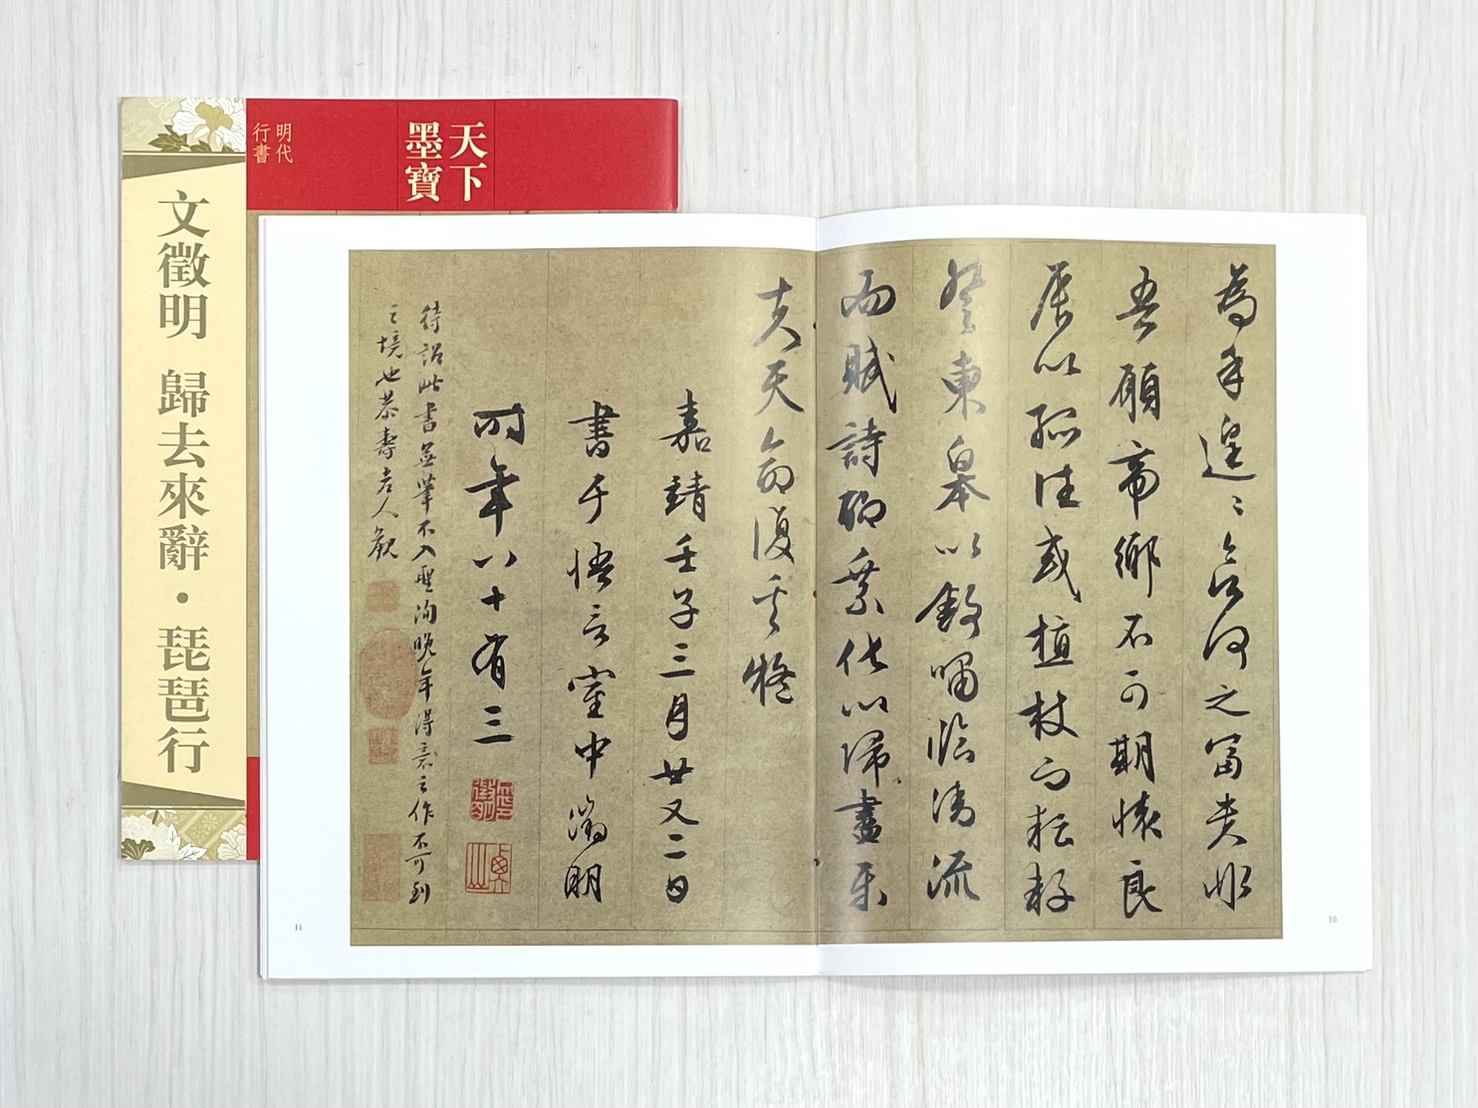 文徵明 歸去來辭・琵琶行
明代
行書
天下
墨寶
為乎遑〻欲何之富貴非
吾願帝鄉不可期懷良
辰以孤往或植杖而耘耔
登東皋以舒嘯臨清流
而賦詩聊乘化以歸盡樂
夫天命復奚疑
嘉靖壬子三月廿又二日
書于悟言室中徵明
時年八十有三
待詔此書並筆不入聖洵晚年得意之作不可到
之境也恭壽老人觀
10
11